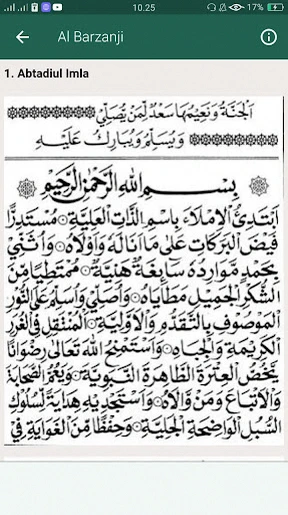 10.25
17%
Al Barzanji
1. Abtadiul Imla
اَلْجَنَّةُ وَنَعِيْمُهَا سَعْدٌ لِمَنْ يُصَلِّيْ
وَيُسَلِّمُ وَيُبَارِكُ عَلَيْهِ
بِسْمِ اللهِ الرَّحْمٰنِ الرَّحِيْمِ
اَبْتَدِئُ الْاِمْلَاءَ بِاسْمِ الذَّاتِ الْعَلِيَّةِ مُسْتَدِرًّا
فَيْضَ الْبَرَكَاتِ عَلٰى مَا اَنَالَهُ وَاَوْلَاهُ وَاُثَنِّيْ
بِحَمْدٍ مَوَارِدُهُ سَائِغَةٌ هَنِيَّةٌ مُمْتَطِيًا مِنَ
الشُّكْرِ الْجَمِيْلِ مَطَايَاهُ وَاُصَلِّيْ وَاُسَلِّمُ عَلَى النُّوْرِ
الْمَوْصُوْفِ بِالتَّقَدُّمِ وَالْاَوَّلِيَّةِ الْمُنْتَقِلِ فِي الْغُرَرِ
الْكَرِيْمَةِ وَالْجِبَاهِ وَاَسْتَمْنِحُ اللهَ تَعَالٰى رِضْوَانًا
يَخُصُّ الْعِتْرَةَ الطَّاهِرَةَ النَّبَوِيَّةَ وَيَعُمُّ الصَّحَابَةَ
وَالْاَتْبَاعَ وَمَنْ وَالَاهُ وَاَسْتَجْدِيْهِ هِدَايَةً لِسُلُوْكِ
السُّبُلِ الْوَاضِحَةِ الْجَلِيَّةِ وَحِفْظًا مِنَ الْغَوَايَةِ فِيْ